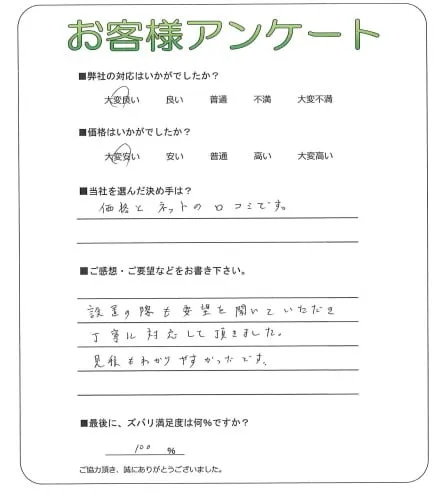 お客様アンケート
■弊社の対応はいかがでしたか？
大変良い 良い 普通 不満 大変不満
■価格はいかがでしたか？
大変安い 安い 普通 高い 大変高い
■当社を選んだ決め手は？
価格と ネットの口コミです。
■ご感想・ご要望などをお書き下さい。
設置の際も要望を聞いていただき
丁寧に対応して頂きました。
見積もわかりやすかったです。
■最後に、ズバリ満足度は何%ですか？
100 %
ご協力頂き、誠にありがとうございました。